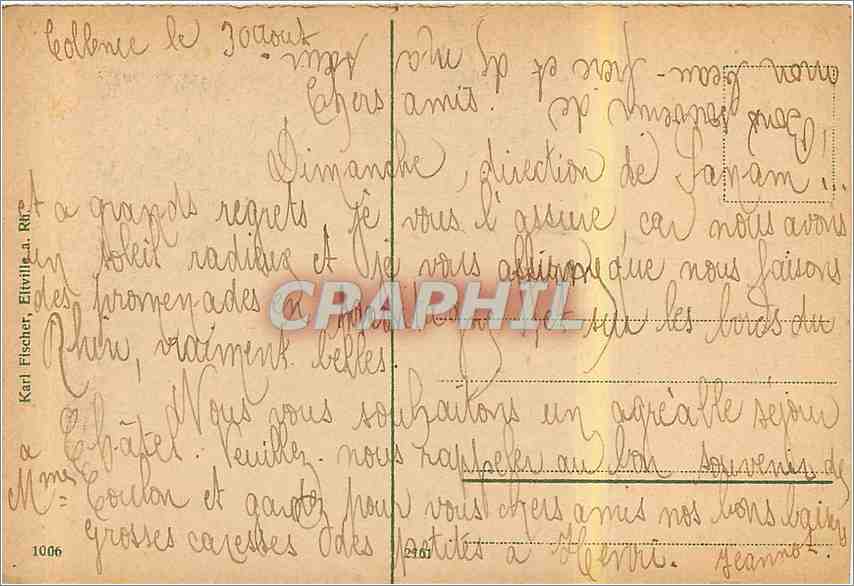 Coblence le 30 aout
Chers amis.
Dimanche, direction de
et a grands regrets je vous l'assure car nous avons
un soleil radieux et je vous que nous faisons
des promenades en sur les bords du
Rhin, vraiment belles
Nous vous souhaitons un agréable séjour
a Châtel. Veuillez nous rappeler au bon souvenir de
Mmes Coulon et gardez pour vous chers amis nos bons baisers
grosses caresses des petites à Henri. Jeannot.
Bons souvenirs de
mon Jean - frère et de ma
Karl Fischer, Eltville a. Rh.
1006
2161
CPAPHIL